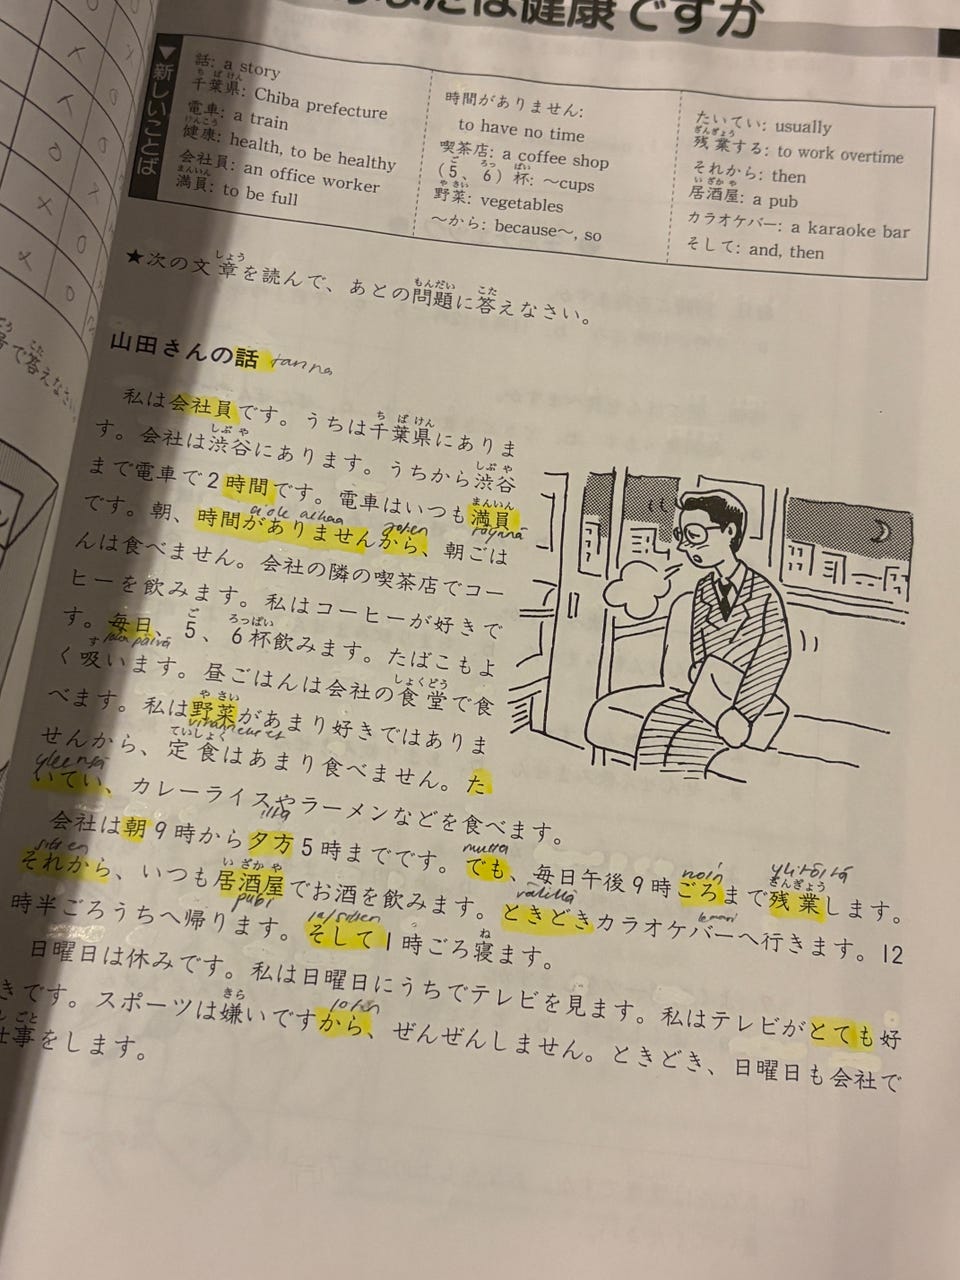 なたは健康ですか
▼新しいことば
話: a story
ちばけん
千葉県: Chiba prefecture
電車: a train
けんこう
健康: health, to be healthy
会社員: an office worker
まんいん
満員: to be full
時間がありません:
to have no time
喫茶店: a coffee shop
ご ろっ ぱい
(5、6)杯: ～cups
やさい
野菜: vegetables
～から: because～, so
たいてい: usually
ざんぎょう
残業する: to work overtime
それから: then
いざかや
居酒屋: a pub
カラオケバー: a karaoke bar
そして: and, then
しょう もんだい こた
★次の文章を読んで、あとの問題に答えなさい。
山田さんの話 tarina
ち ば けん
私は会社員です。うちは千葉県にありま
しぶや しぶや
す。会社は渋谷にあります。うちから渋谷
まんいん
まで電車で2時間です。電車はいつも満員
ei ole aikaa joten täynnä
です。朝、時間がありませんから、朝ごは
んは食べません。会社の隣の喫茶店でコー
ヒーを飲みます。私はコーヒーが好きで
ご ろっぱい
す。毎日、5、6杯飲みます。たばこもよ
す joka päivä しょくどう
く吸います。昼ごはんは会社の食堂で食
やさい
べます。私は野菜があまり好きではありま
ていしょく vihannekset
せんから、定食はあまり食べません。た
yleensä
いてい、カレーライスやラーメンなどを食べます。
ilta
会社は朝9時から夕方5時までです。でも、毎日午後9時ごろまで残業します。
mutta noin ylitöitä ざんぎょう
sitten いざかや
それから、いつも居酒屋でお酒を飲みます。ときどきカラオケバーへ行きます。12
pubi välillä
時半ごろうちへ帰ります。そして1時ごろ寝ます。
ja sitten ね
日曜日は休みです。私は日曜日にうちでテレビを見ます。私はテレビがとても好
きら joten
きです。スポーツは嫌いですから、ぜんぜんしません。ときどき、日曜日も会社で
しごと
仕事をします。
こた
で答えなさい。